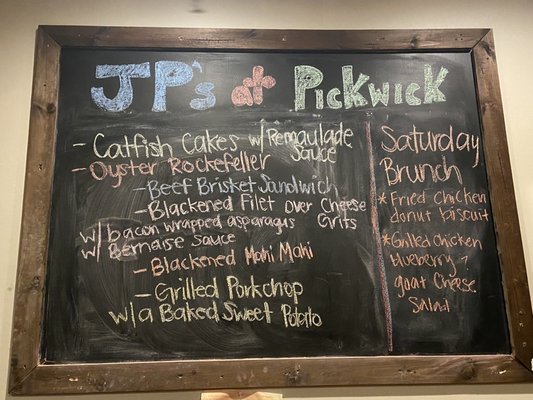 JP's at PickWick
- Catfish Cakes w/ Remaulade
Sauce
- Oyster Rockefeller
- Beef Brisket Sandwich
- Blackened Filet over Cheese
Grits
w/ bacon wrapped asparagus
w/ Bernaise Sauce
- Blackened Mahi Mahi
- Grilled Porkchop
w/ a Baked Sweet Potato
Saturday
Brunch
* Fried Chicken
donut biscuit
* Grilled Chicken
blueberry &
goat cheese
Salad